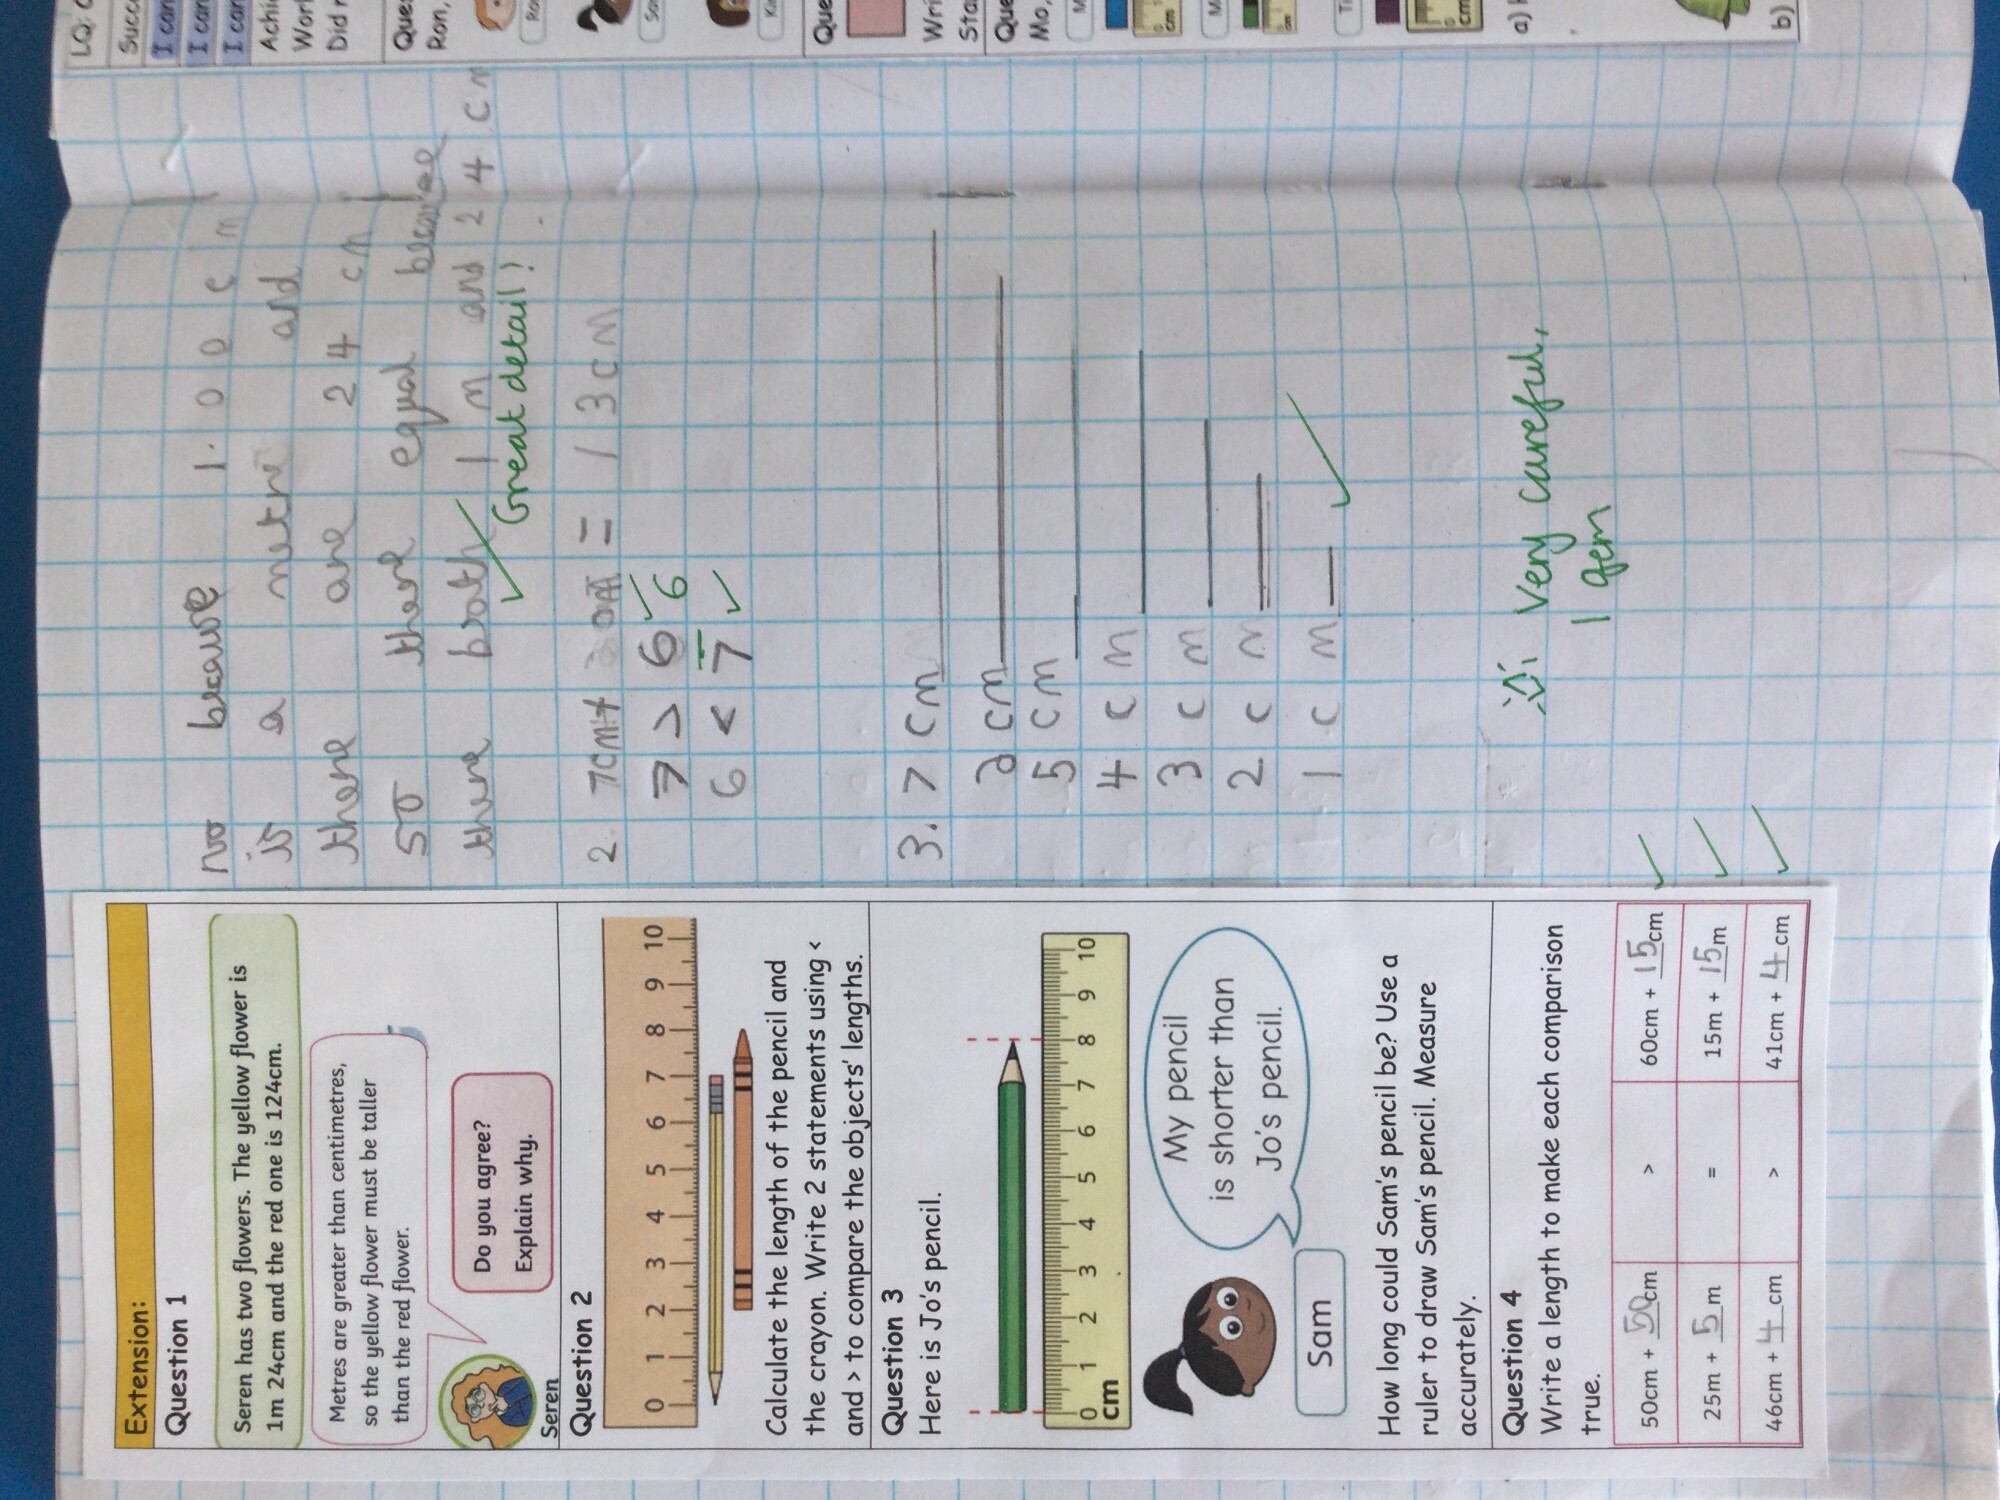 Extension:
Question 1
Seren has two flowers. The yellow flower is
1m 24cm and the red one is 124cm.
Metres are greater than centimetres,
so the yellow flower must be taller
than the red flower.
Do you agree?
Explain why.
Seren
Question 2
0 1 2 3 4 5 6 7 8 9 10
Calculate the length of the pencil and
the crayon. Write 2 statements using <
and > to compare the objects' lengths.
Question 3
Here is Jo's pencil.
0 1 2 3 4 5 6 7 8 9 10
cm
My pencil
is shorter than
Jo's pencil.
Sam
How long could Sam's pencil be? Use a
ruler to draw Sam's pencil. Measure
accurately.
Question 4
Write a length to make each comparison
true.
50cm + 50cm > 60cm + 15cm
25m + 5m = 15m + 15m
46cm + 4cm > 41cm + 4cm
no because 1.00cm
is a metre and
there are 24 cm
so there equal because
there both 1 m and 24 cm
Great detail!
2. 7cm+ = 13cm
7 > 6
6 < 7 6
3. 7 cm
cm
5 cm
4 cm
3 cm
2 cm
1 cm
Very careful,
1 gem
LQ:
Succ
I can
I can
I can
Achi
Wor
Did r
Que
Ron,
Ro
So
Ki
Que
Wri
Sta
Que
Mo,
M
0
cm
M
Ti
0
cm
a)
b)